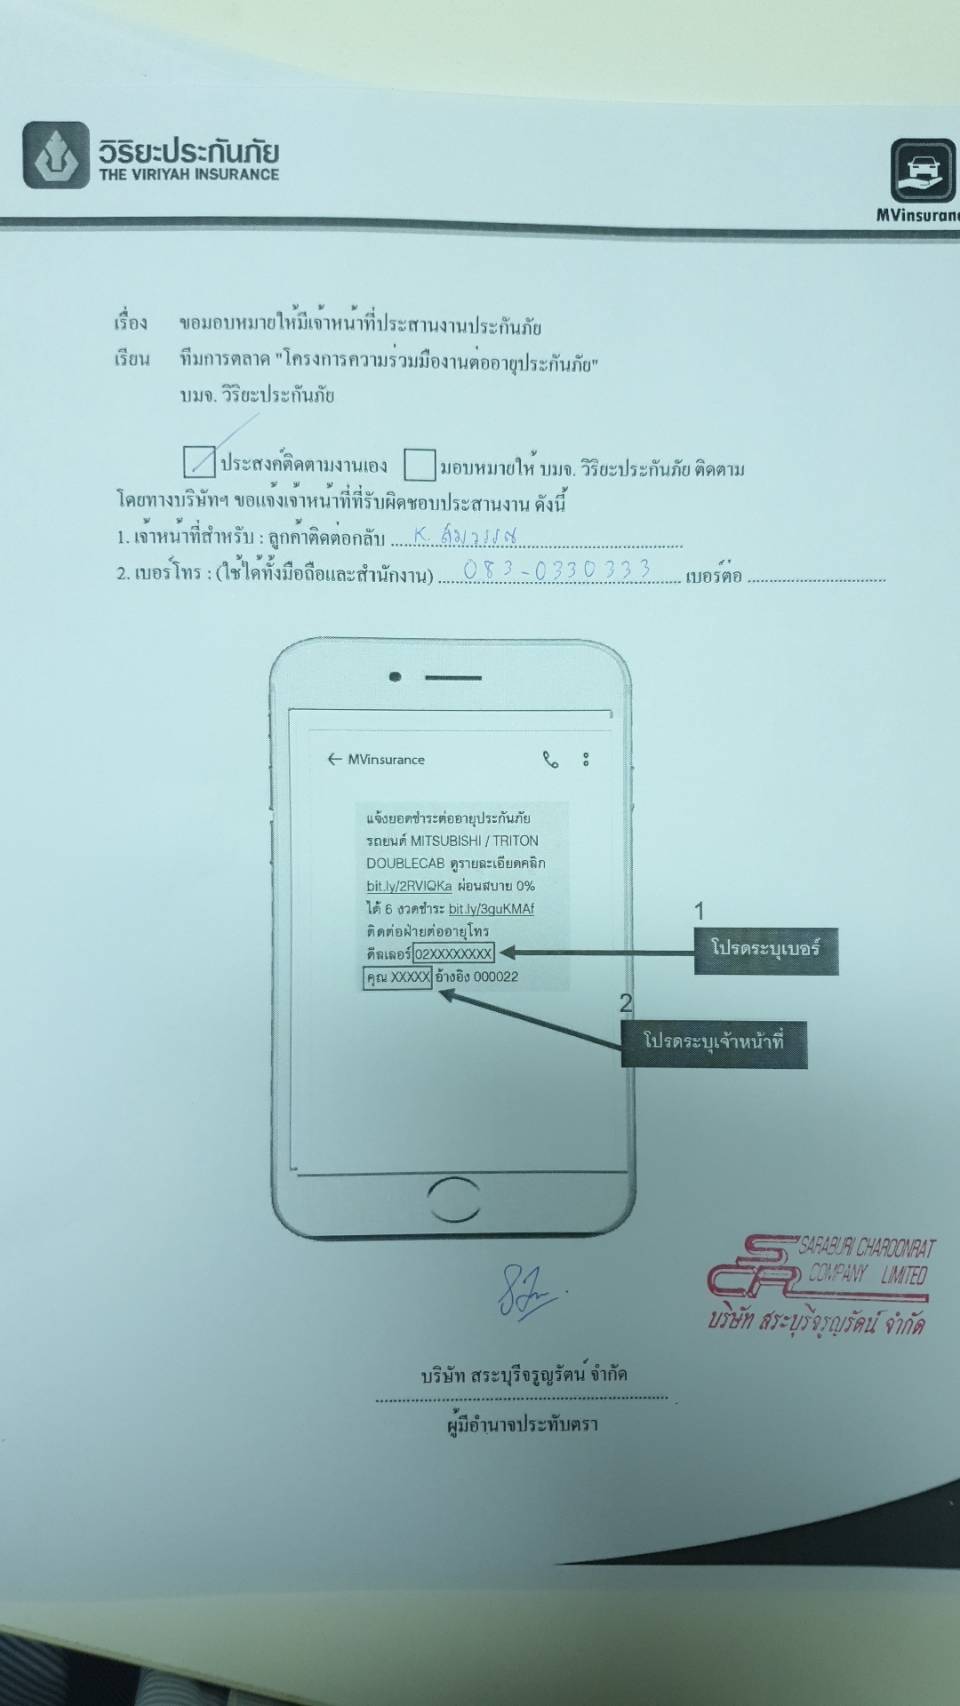 วิริยะประกันภัย
THE VIRIYAH INSURANCE
MVinsuranc
เรื่อง ขอมอบหมายให้มีเจ้าหน้าที่ประสานงานประกันภัย
เรียน ทีมการตลาด "โครงการความร่วมมืองานต่ออายุประกันภัย"
บมจ. วิริยะประกันภัย
ประสงค์ติดตามงานเอง มอบหมายให้ บมจ. วิริยะประกันภัย ติดตาม
โดยทางบริษัทฯ ขอแจ้งเจ้าหน้าที่ที่รับผิดชอบประสานงาน ดังนี้
1. เจ้าหน้าที่สำหรับ : ลูกค้าติดต่อกลับ K. สมวรรณ
2. เบอร์โทร : (ใช้ได้ทั้งมือถือและสำนักงาน) 083-0330333 เบอร์ต่อ
← MVinsurance
แจ้งยอดชำระต่ออายุประกันภัย
รถยนต์ MITSUBISHI / TRITON
DOUBLECAB ดูรายละเอียดคลิก
bit.ly/2RVIQKa ผ่อนสบาย 0%
ได้ 6 งวดชำระ bit.ly/3guKMAf
ติดต่อฝ่ายต่ออายุโทร
ดีลเลอร์ 02XXXXXXXX
คุณ XXXXX อ้างอิง 000022
1
โปรดระบุเบอร์
2
โปรดระบุเจ้าหน้าที่
SARABURI CHAROONRAT
COMPANY LIMITED
บริษัท สระบุรีจรูญรัตน์ จำกัด
บริษัท สระบุรีจรูญรัตน์ จำกัด
ผู้มีอำนาจประทับตรา